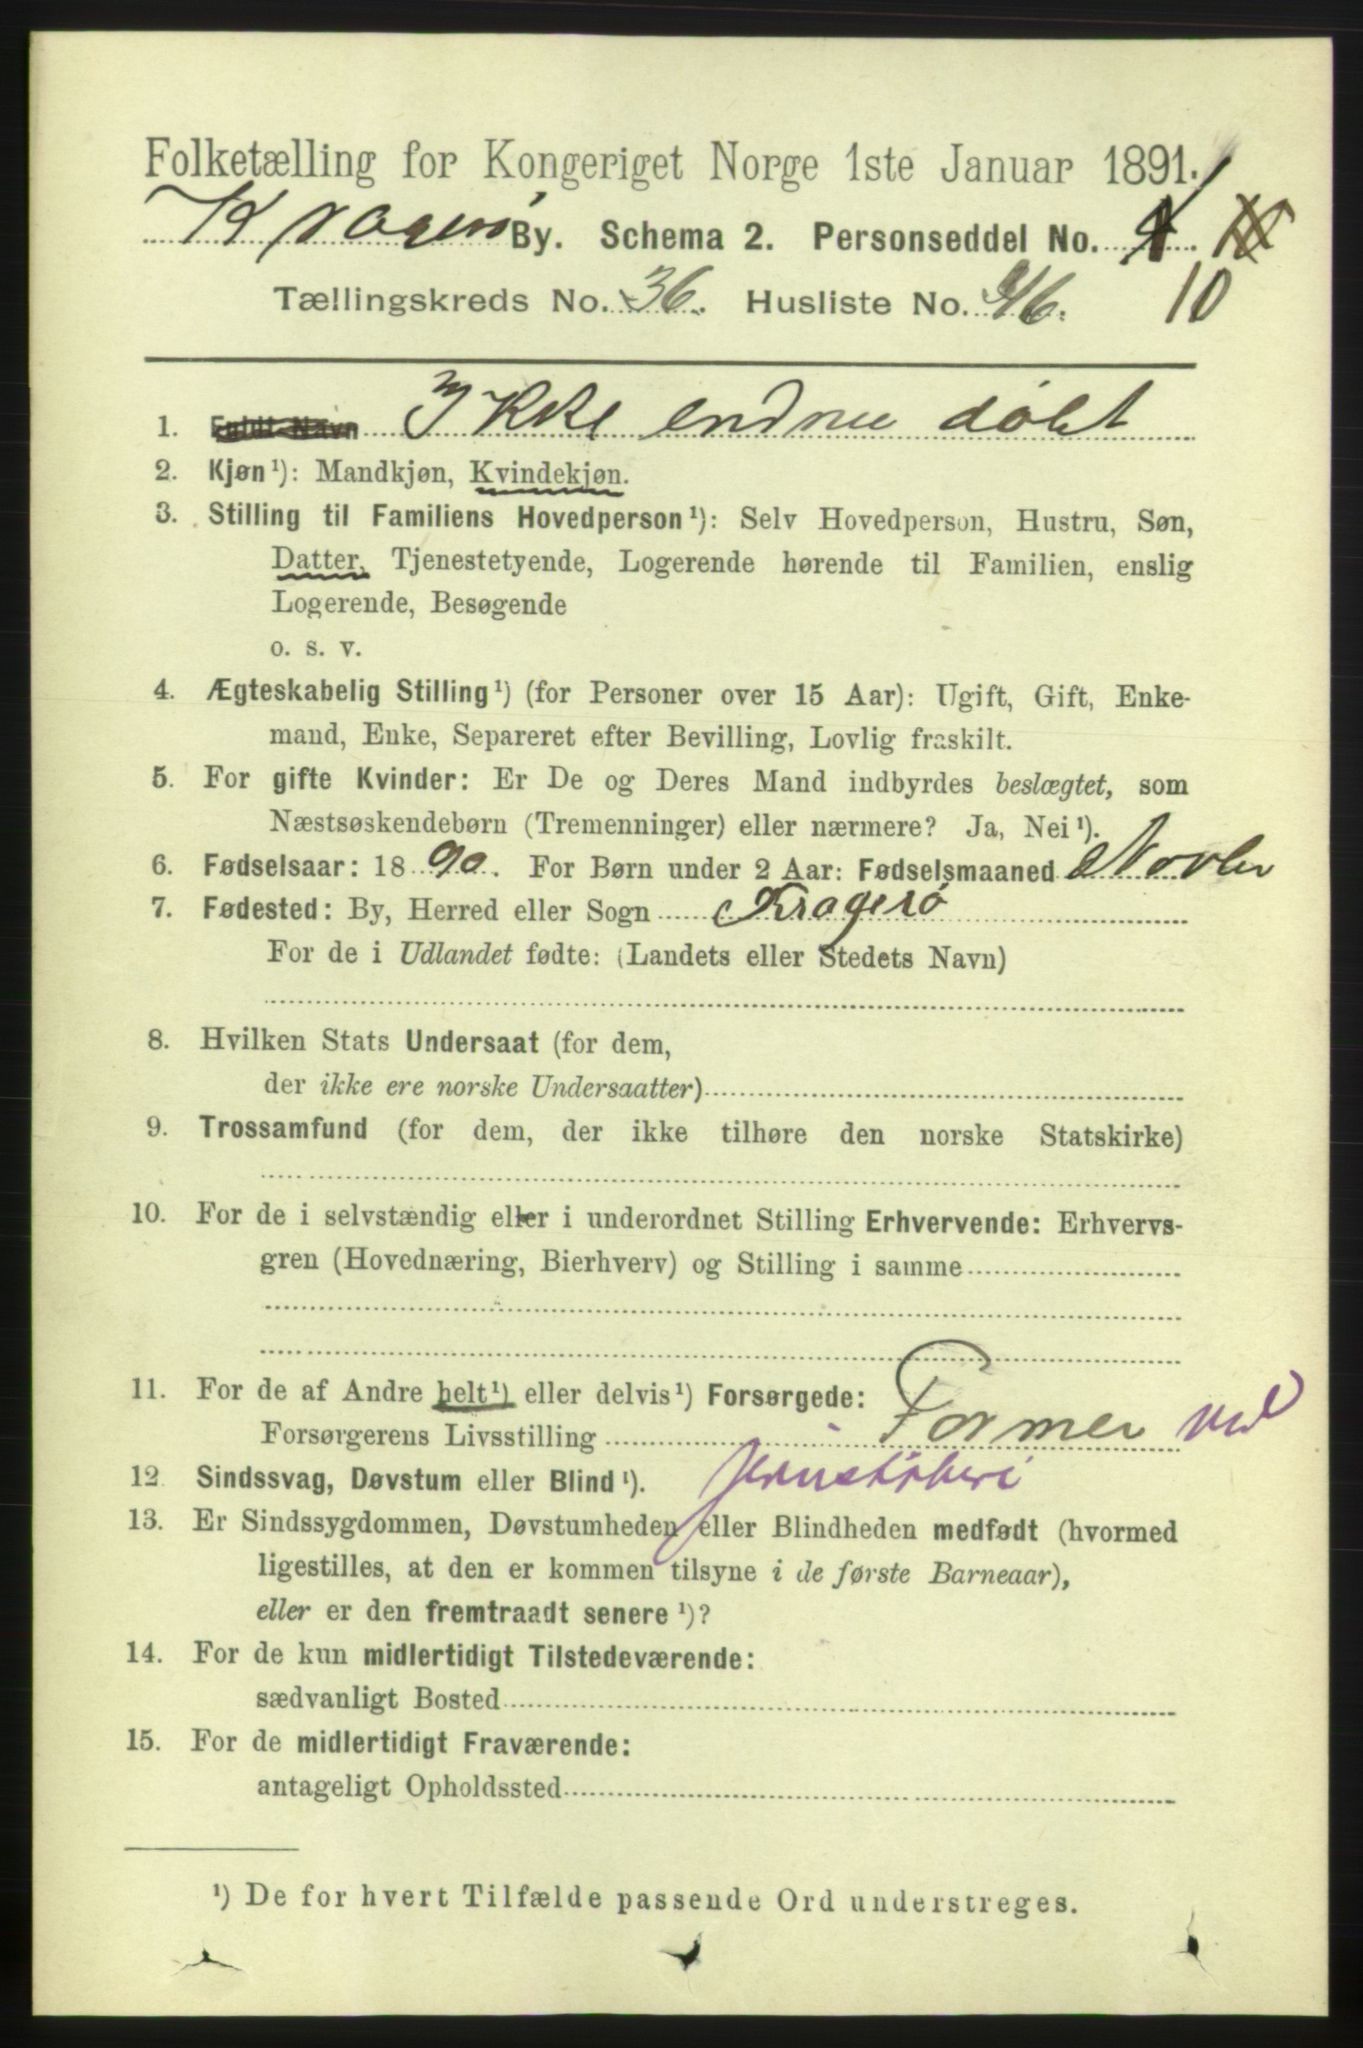 Folketælling for Kongeriget Norge 1ste Januar 1891.
Kragerø By. Schema 2. Personseddel No.
Tællingskreds No. 36. Husliste No. 46. 10
1. Fuldt Navn Ikke endnu døbt
2. Kjøn¹): Mandkjøn, Kvindekjøn.
3. Stilling til Familiens Hovedperson¹): Selv Hovedperson, Hustru, Søn,
Datter, Tjenestetyende, Logerende hørende til Familien, enslig
Logerende, Besøgende
o. s. v.
4. Ægteskabelig Stilling¹) (for Personer over 15 Aar): Ugift, Gift, Enke-
mand, Enke, Separeret efter Bevilling, Lovlig fraskilt.
5. For gifte Kvinder: Er De og Deres Mand indbyrdes beslægtet, som
Næstsøskendebørn (Tremenninger) eller nærmere? Ja, Nei¹).
6. Fødselsaar: 1890. For Børn under 2 Aar: Fødselsmaaned Novber
7. Fødested: By, Herred eller Sogn Kragerø
For de i Udlandet fødte: (Landets eller Stedets Navn)
8. Hvilken Stats Undersaat (for dem,
der ikke ere norske Undersaatter)
9. Trossamfund (for dem, der ikke tilhøre den norske Statskirke)
10. For de i selvstændig eller i underordnet Stilling Erhvervende: Erhvervs-
gren (Hovednæring, Bierhverv) og Stilling i samme
11. For de af Andre helt¹) eller delvis¹) Forsørgede:
Forsørgerens Livsstilling Former ved
12. Sindssvag, Døvstum eller Blind¹). Jernstøberi
13. Er Sindssygdommen, Døvstumheden eller Blindheden medfødt (hvormed
ligestilles, at den er kommen tilsyne i de første Barneaar),
eller er den fremtraadt senere¹)?
14. For de kun midlertidigt Tilstedeværende:
sædvanligt Bosted
15. For de midlertidigt Fraværende:
antageligt Opholdssted
¹) De for hvert Tilfælde passende Ord understreges.